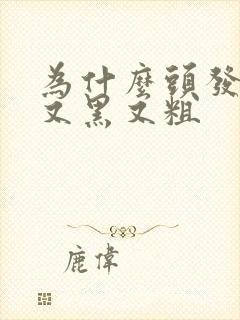 為什麼頭發
又黑又粗
鹿偉